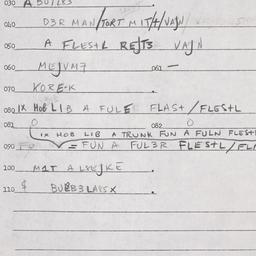 030 A BUTZES
040 D3R MAN/TORT MIT/H/VAJN
050 A FLESTL REJTS VAJN
060 MEJVM7 061 —
070 KOREK
080 IX HOB LIB A FULE FLAST/FLESTL
081 O 082 O
IX HOB LIB A TRUNK FUN A FULN FLEST
090 = FUN A FUL3R FLESTL/FL
100 M1T A
110 $